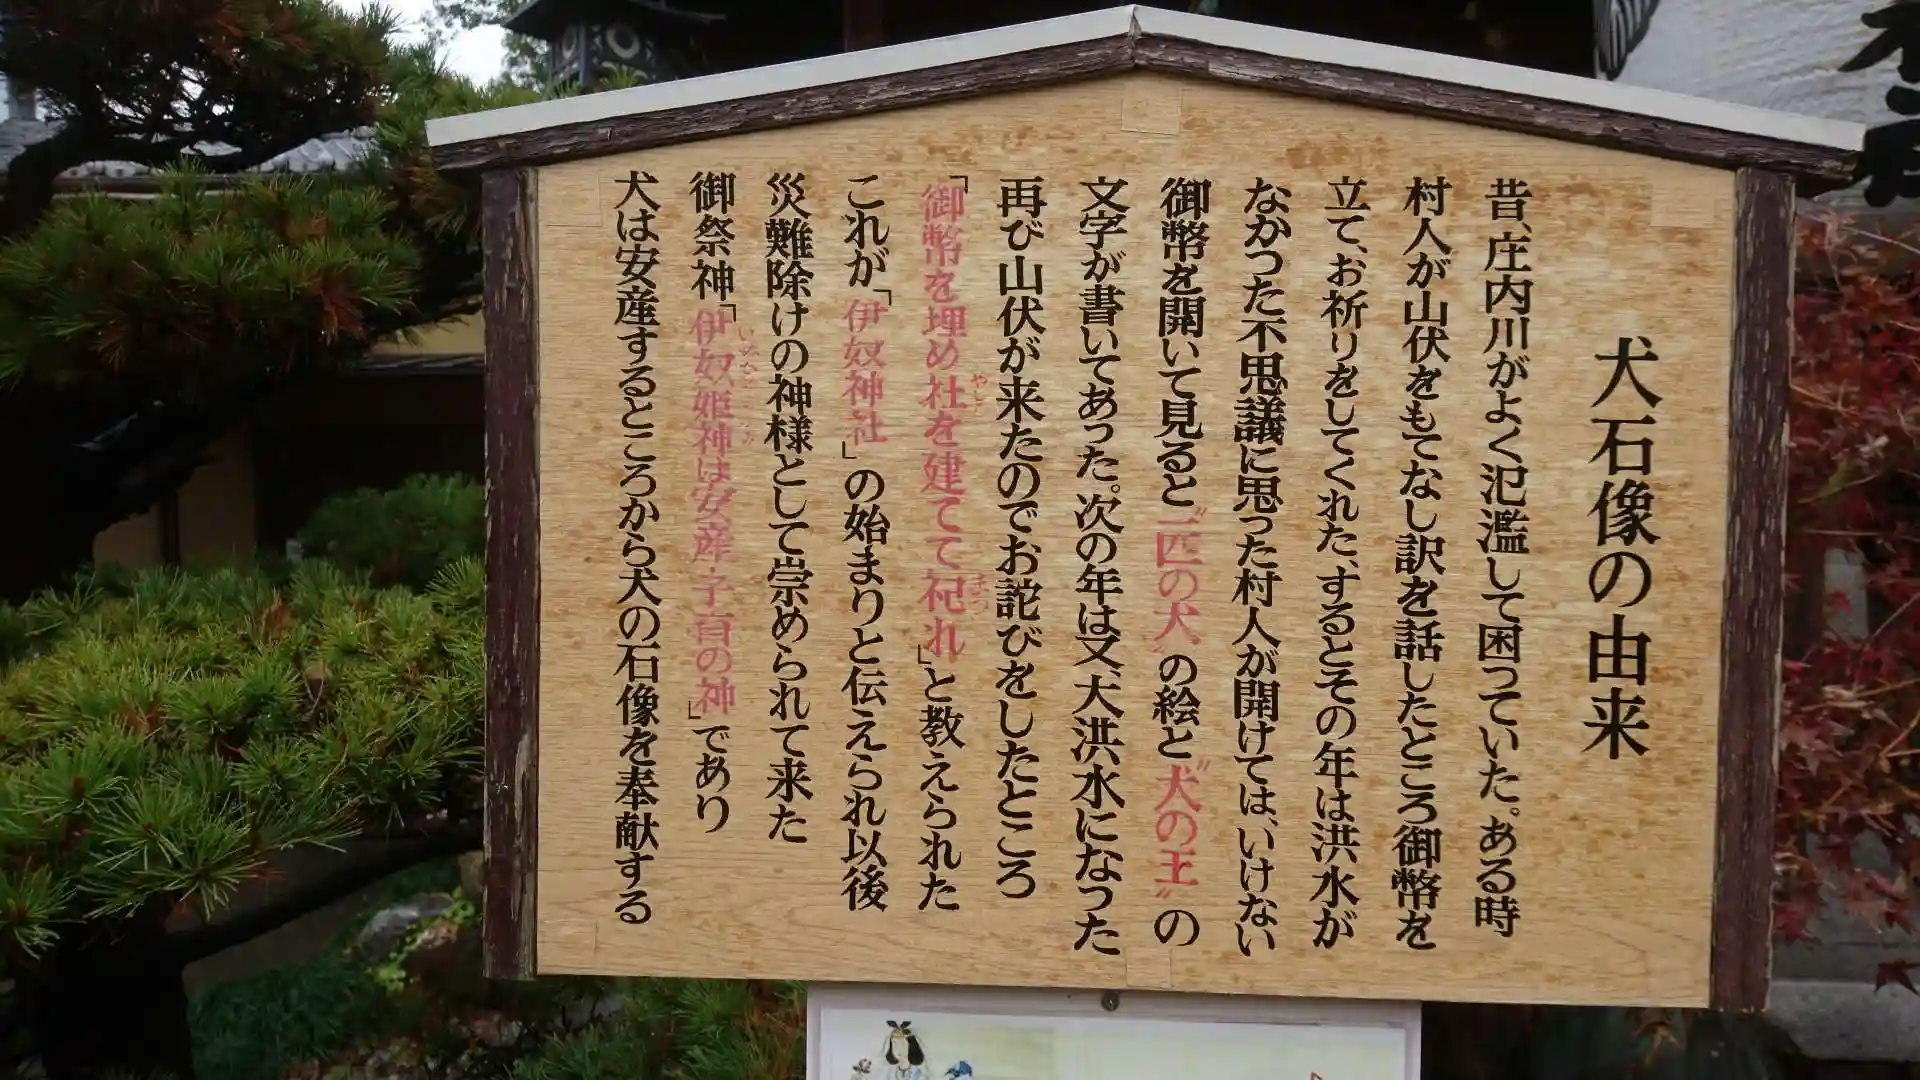 犬石像の由来
昔、庄内川がよく氾濫して困っていた。ある時
村人が山伏をもてなし訳を話したところ御幣を
立て、お祈りをしてくれた、するとその年は洪水が
なかった不思議に思った村人が開けては、いけない
御幣を開いて見ると〝一匹の犬〟の絵と〝犬の王〟の
文字が書いてあった。次の年は又、大洪水になった
再び山伏が来たのでお詑びをしたところ
「御幣を埋め社を建てて祀れ」と教えられた
やしろ
まつ
これが「伊奴神社」の始まりと伝えられ以後
災難除けの神様として崇められて来た
御祭神「伊奴姫神は安産・子育の神」であり
犬は安産するところから犬の石像を奉献する